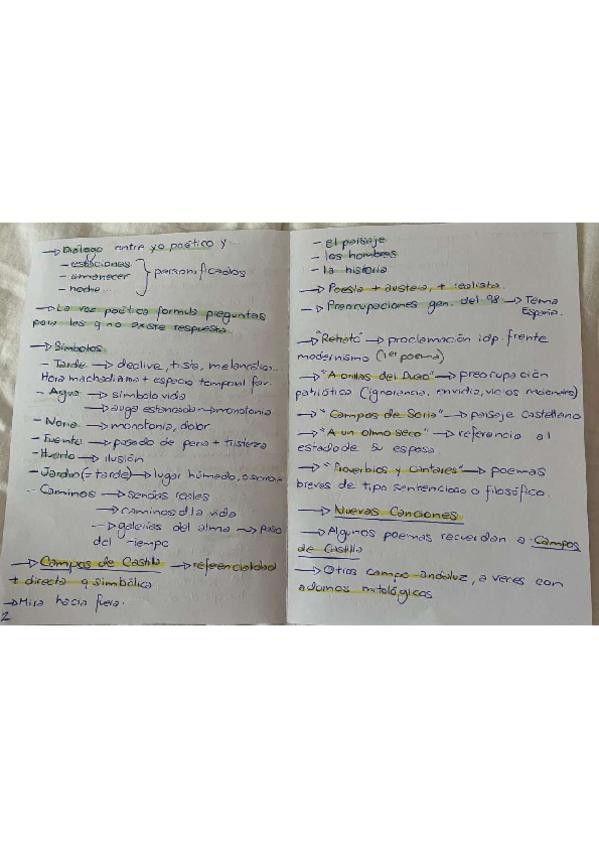 → Diálogo entre yo poético y...
- estaciones
- amanecer
- noche...
} personificados
→ La voz poética formula preguntas
para las q no existe respuesta.
→ Símbolos
- Tarde → declive, tista, melancolía...
Hora machadiana + espacio temporal fav.
- Agua → símbolo vida
→ auga estancada → monotonia
- Noria → monotonía, dolor
- Fuente → pasado de pena + tristeza
- Huerto → ilusión
- Jardín (= tarde) → lugar húmedo,
- Caminos → sendas reales
→ caminos d la vida
→ galerías del alma → paso
del tiempo
→ Campos de Castilla → refeencialidad
+ directa q simbólica
→ Mira hacia fuera.
2
- el paisaje
- los hombres
- la historia
→ Poesía + austera, + realista.
→ Preocupaciones gen. del 98 → Tema
España.
→ "Retrato" → proclamación idp. frente
modernismo (1er poema)
→ "A orillas del Duero" → preocupación
patriótica (ignorancia, envidia, vicios nacionales)
→ "Campos de Soria" → paisaje castellano
→ "A un olmo seco" → referencia al
estado de su esposa.
→ "Proverbios y Cantares" → poemas
breves de tipo sentencioso o filosófico.
→ Nuevas Canciones
→ Algunos poemas recuerdan a Campos
de Castilla
→ Otros campo andaluz, a veces con
adornos mitológicos